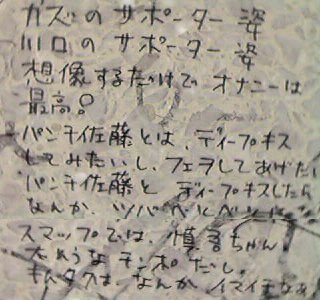 カズのサポーター姿
川口のサポーター姿
想像するだけでオナニーは
最高!
パンチ佐藤とは、ディープキス
してみたいし、フェラしてあげたい
パンチ佐藤とディープキスしたら
なんか、ツバベトベトに
スマップでは、慎吾ちゃん!
太そうなチンポだし。
キムタクは、なんかイマイチなあ